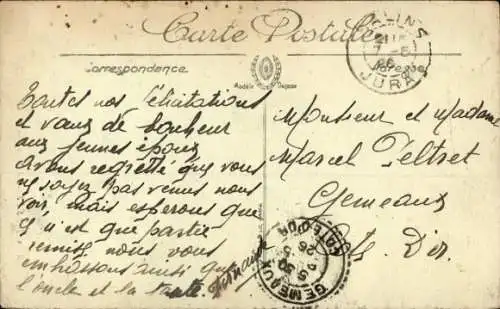 Carte Postale
Correspondence
Adresse
Modèle Déposé
JURA
Toutes nos félicitations
et vœux de bonheur
aux jeunes époux
avons regretté que vous
ne soyez pas venus nous
voir, mais esperons que
ce n'est que partie
remise nous vous
embrassons ainsi que
l'oncle et la tante.
Monsieur et Madame
Marcel Peltret
Gemeaux
Cte d'Or.
GEMEAUX
COTE D'OR